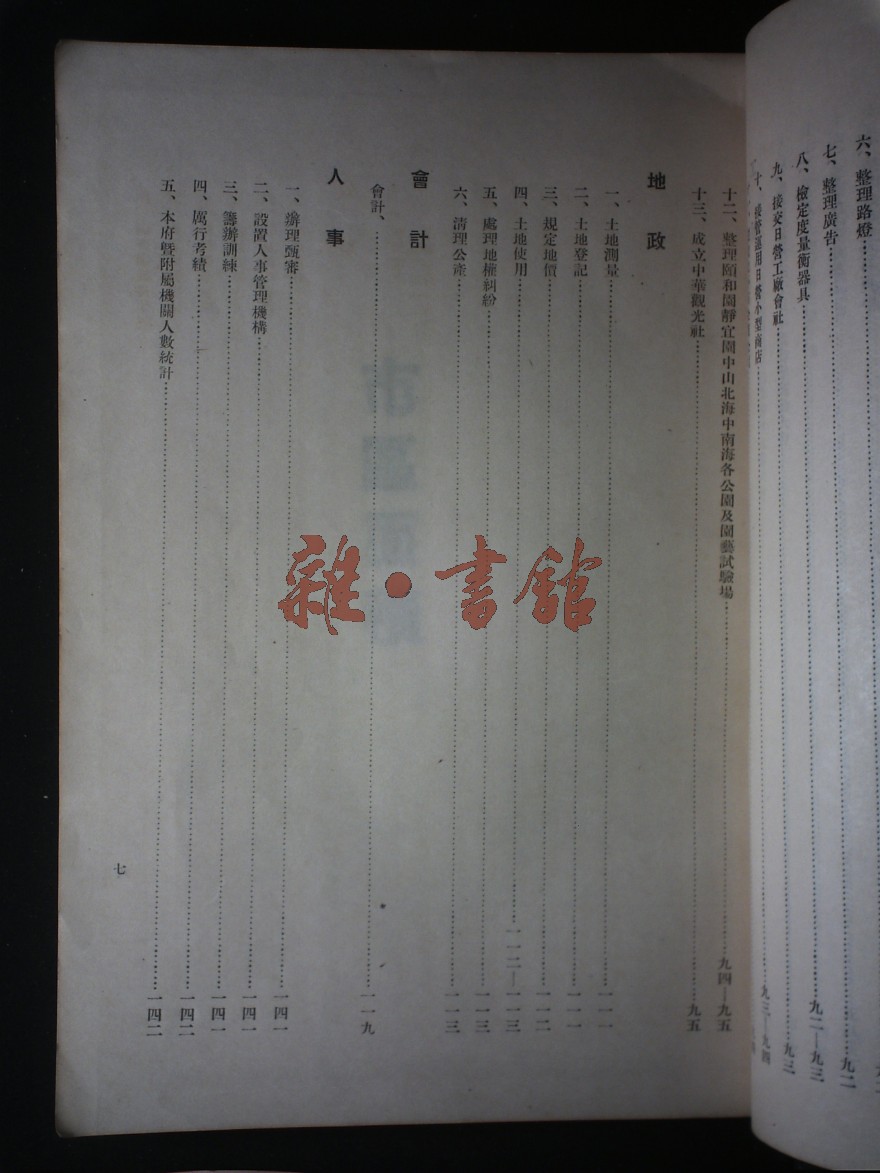 六、整理路燈
七、整理廣告……九二
八、檢定度量衡器具……九二—九三
九、接交日營工廠會社……九三
十、接管運用日營小型商店……九三—九四
十二、整理頤和園靜宜園中山北海中南海各公園及園藝試驗場……九四—九五
十三、成立中華觀光社……九五
地政
一、土地測量……一一一
二、土地登記……一一一
三、規定地價……一一二
四、土地使用……一一二—一一三
五、處理地權糾紛……一一三
六、清理公產……一一三
會計
會計、……一一九
人事
一、辦理甄審……一四一
二、設置人事管理機構……一四一
三、籌辦訓練……一四一
四、厲行考績……一四二
五、本府暨附屬機關人數統計……一四二
七
雜·書館